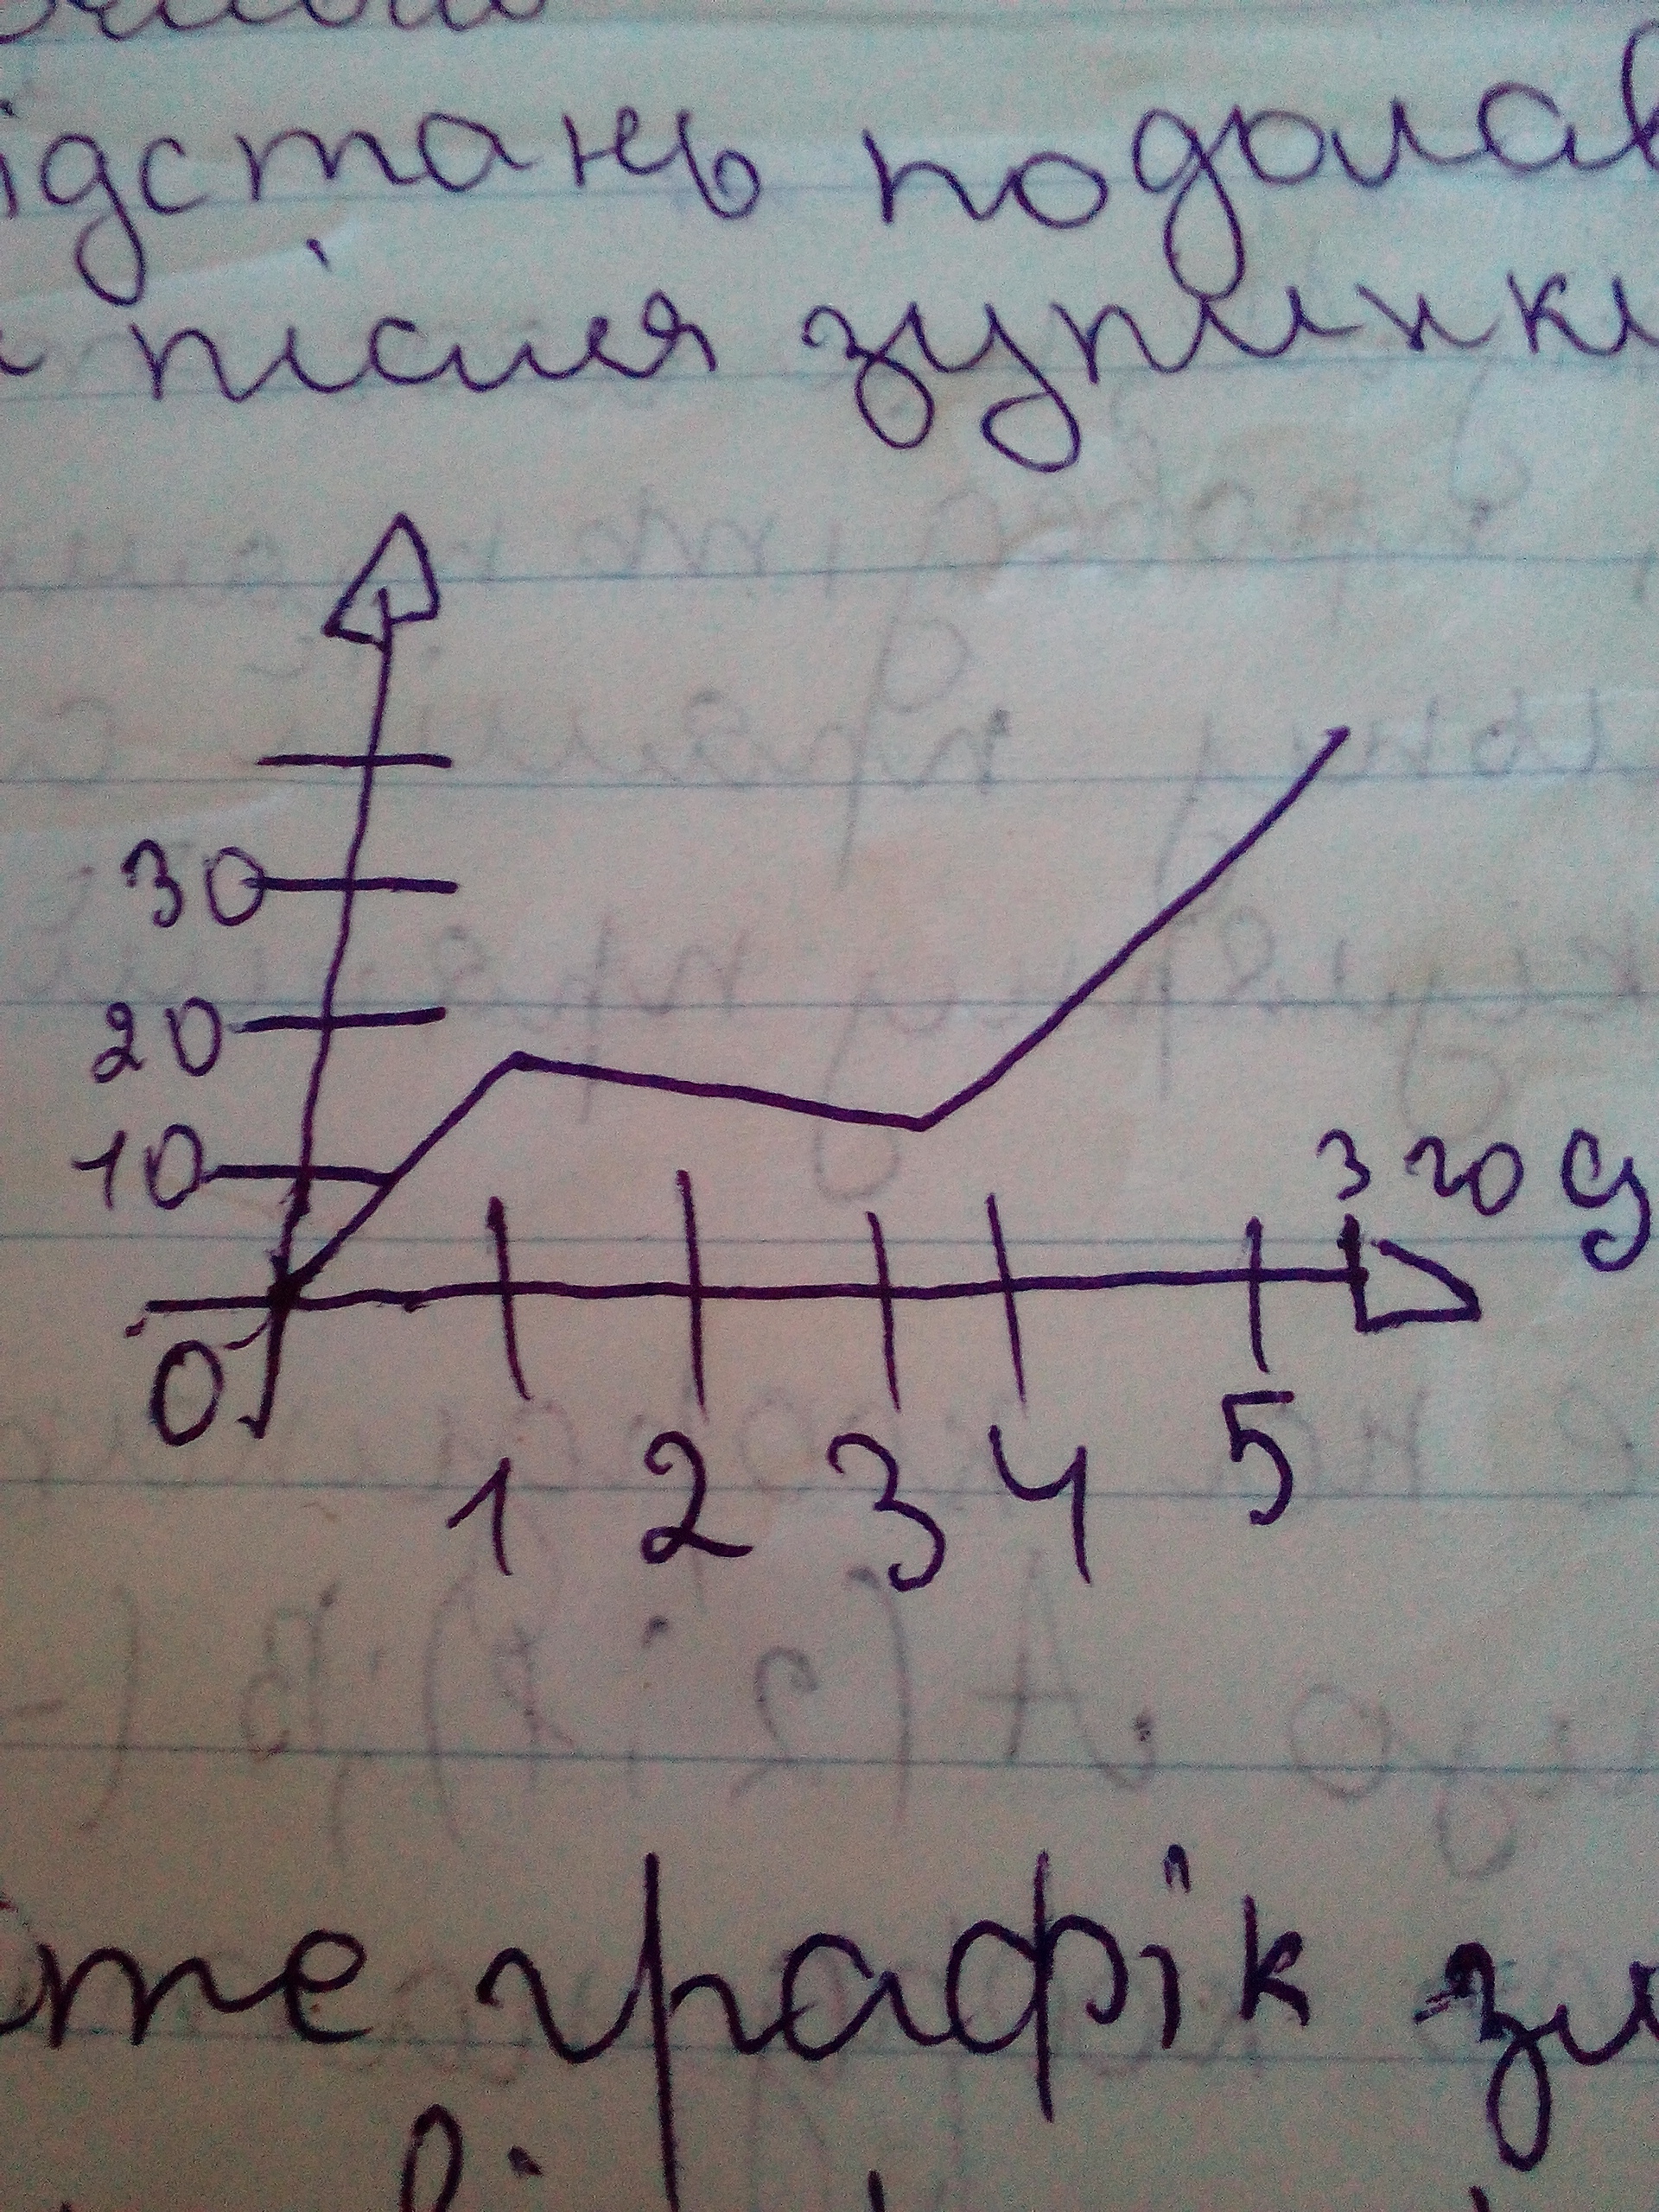 ідстань подолав
після зупинки
30
20
10
3 год
0
1 2 3 4 5
те графік